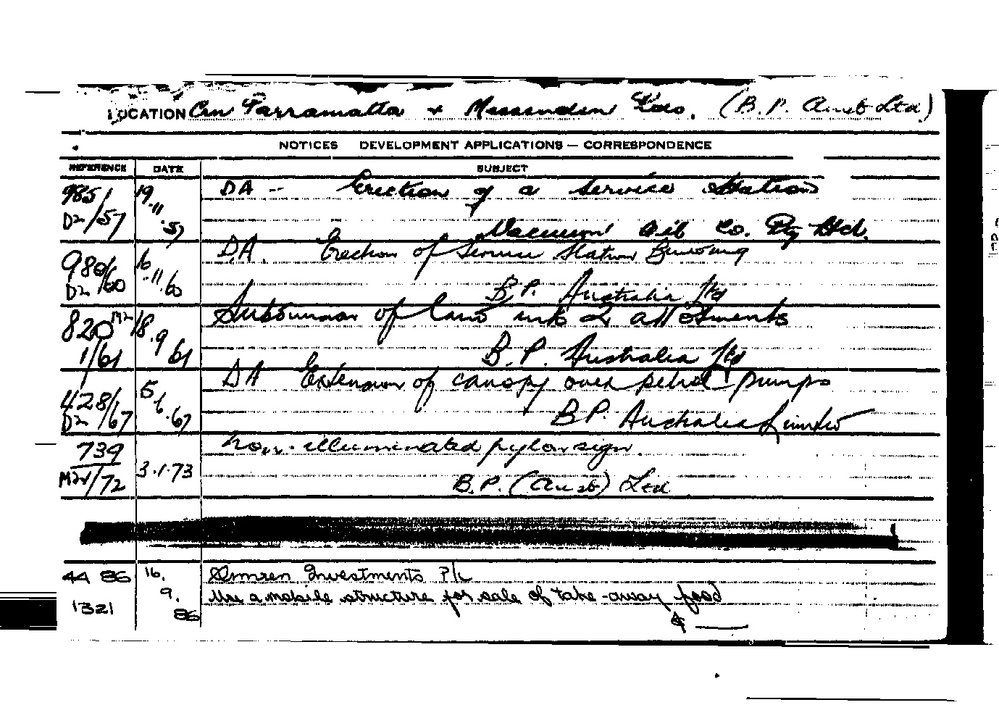 LOCATION Cnr Parramatta + Missenden Rds. (B.P. Aust Ltd)
NOTICES DEVELOPMENT APPLICATIONS — CORRESPONDENCE
REFERENCE DATE SUBJECT
985/ D2/57 19.11.57 DA — Erection of a Service Station
Vacuum Oil Co. Pty Ltd.
980/ D2/60 16.11.60 DA. Erection of Service Station Building
B.P. Australia Ltd
820 1/61 18.9.61 Subdivision of land into 2 allotments
B.P. Australia Ltd
428/ D2/67 5.6.67 DA Extension of canopy over petrol pumps
B.P. Australia Limited
739 /72 3.1.73 Non-illuminated pylon sign.
B.P. (Aust) Ltd
44 86 1321 16.9.86 Investments P/L
Use a mobile structure for sale of take-away food